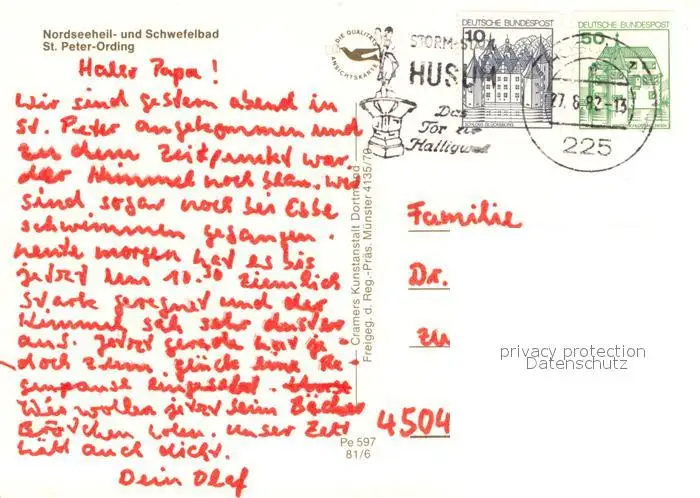 Nordseeheil- und Schwefelbad
St. Peter-Ording
Hallo Papa!
Wir sind gestern abend in
St. Peter angekommen und
zu dem Zeitpunkt war
der Himmel noch blau. Wir
sind sogar noch bei Ebbe
schwimmen gegangen.
Heute morgen hat es bis
jetzt um 10.30 ziemlich
stark geregnet und der
Himmel sah sehr duster
aus. Jetzt gerade hat je-
doch zum Glück eine Re-
genpause eingesetzt.
Wir wollen jetzt beim Bäcker
Brötchen holen. Unser Zelt
hält auch dicht.
Dein Olaf
DIE QUALITÄTS
ANSICHTSKARTE
Cramers Kunstanstalt Dortmund
Freigeg. d. Reg.-Präs. Münster 4135/79
Pe 597
81/6
STORM-STADT
HUSUM
Das
Tor zur
Halligwelt
DEUTSCHE BUNDESPOST
10
SCHLOSS GLÜCKSBURG
DEUTSCHE BUNDESPOST
50
27.8.82-13
225
Familie
Dr.
zu
4504
privacy protection
Datenschutz